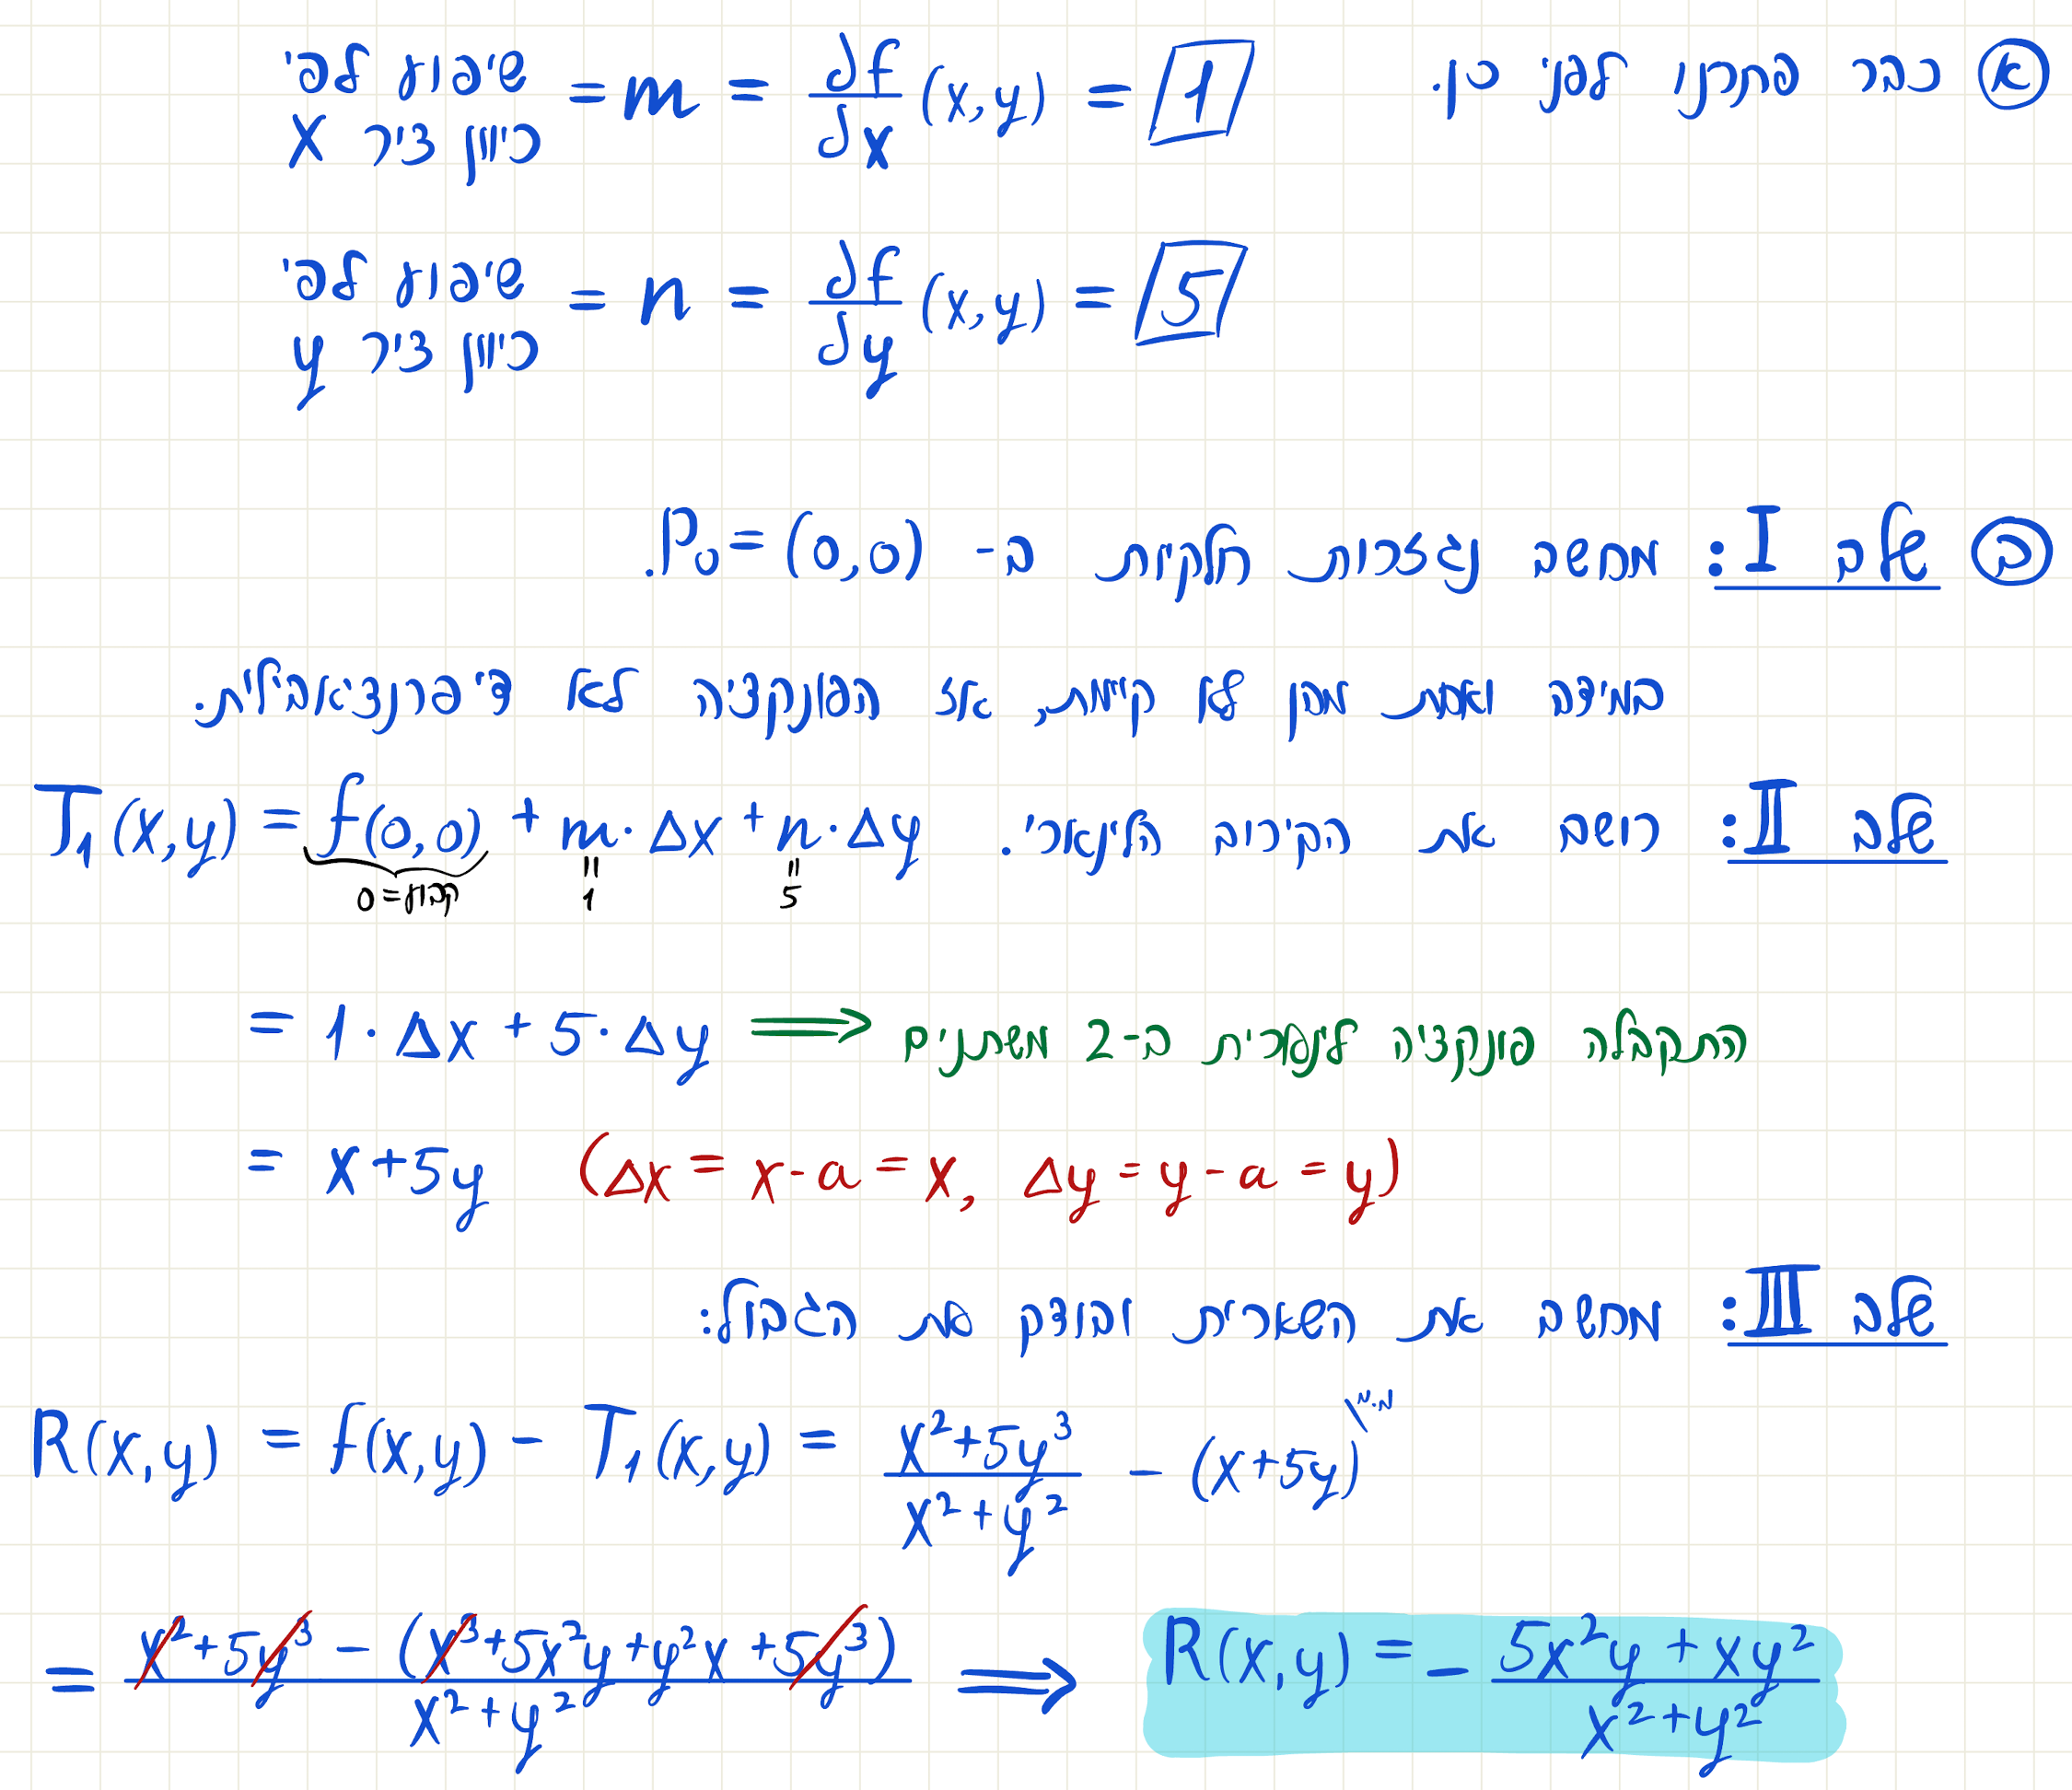 א כבר פתרנו לפני כן.
שיפוע לפי כיוון ציר x = m = ∂f/∂x (x,y) = 1
שיפוע לפי כיוון ציר y = n = ∂f/∂y (x,y) = 5
ב שלב I: מחשב נגזרות חלקיות ב- P₀=(0,0).
במידה ואחת מהן לא קיימת, אז הפונקציה לא דיפרנציאבילית.
שלב II: רושם את הקירוב הלינארי. T₁(x,y) = f(0,0) + m·Δx + n·Δy
נתון=0 "1 "5
= 1·Δx + 5·Δy ⟹ התקבלה פונקציה לינארית ב-2 משתנים
= x+5y (Δx = x-a = x, Δy = y-a = y)
שלב III: מחשב את השארית ובודק את הגבול:
R(x,y) = f(x,y) - T₁(x,y) = (x²+5y³)/(x²+y²) - (x+5y) מ.מ
= (x²+5y³ - (x³+5x²y+y²x+5y³))/(x²+y²) ⟹ R(x,y) = - (5x²y + xy²)/(x²+y²)